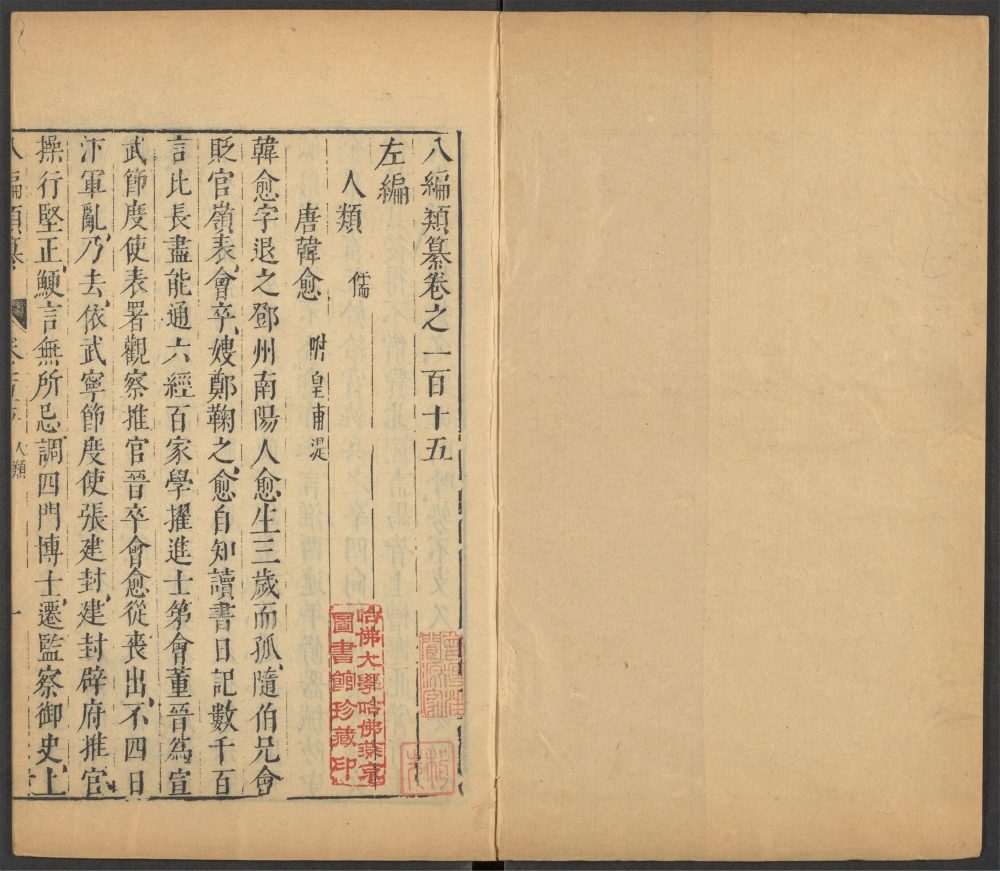 八編類纂卷之一百十五
左編
人類 儒
唐韓愈 附皇甫湜
韓愈字退之鄧州南陽人愈生三歲而孤隨伯兄會
貶官嶺表會卒嫂鄭鞠之愈自知讀書日記數千百
言比長盡能通六經百家學擢進士第會董晉為宣
武節度使表署觀察推官晉卒會愈從喪出不四日
汴軍亂乃去依武寧節度使張建封建封辟府推官
操行堅正鯁言無所忌調四門博士遷監察御史上
八編類纂 人類 一
哈佛大學哈佛燕京
圖書館珍藏印